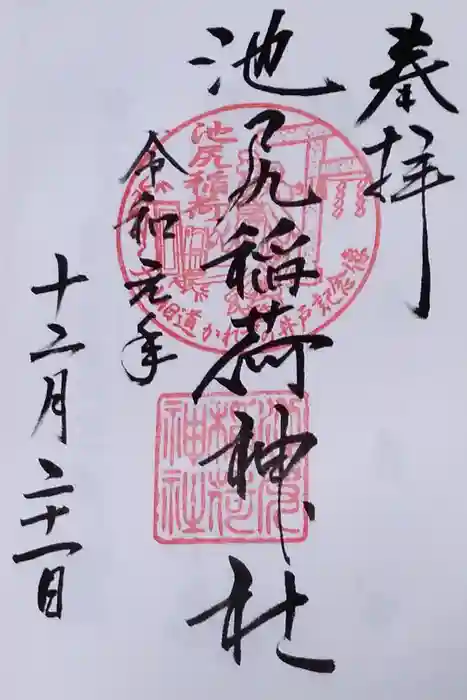 奉拝
池尻稲荷神社
令和元年
十二月二十一日
池尻稲荷
旧道かれずの井戸記念像
池尻稲荷神社